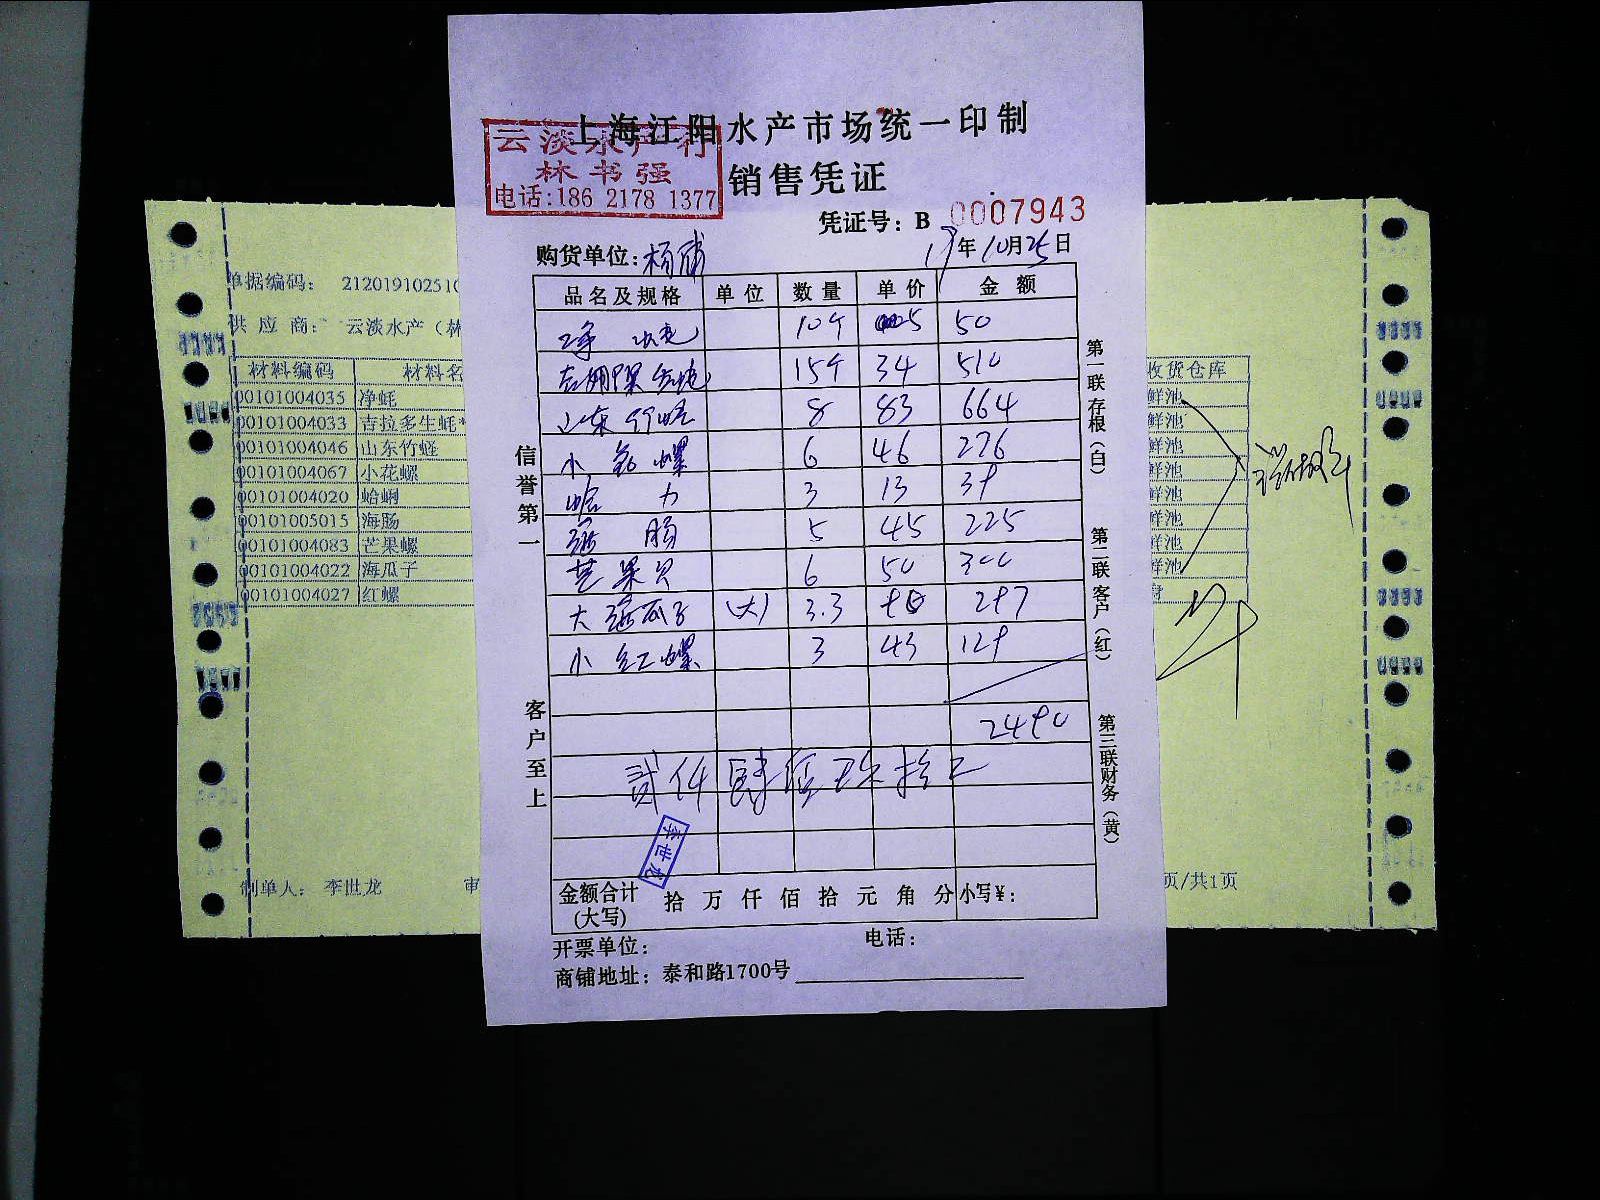 上海江阳水产市场统一印制
云淡水产行
林书强
电话:186 2178 1377
销售凭证
凭证号: B 0007943
购货单位:
19年10月25日
品名及规格 单位 数量 单价 金额
净蚝 10个 5 50
15个 34 510
山东竹蛏 8 83 664
小花螺 6 46 276
哈力 3 13 39
海肠 5 45 225
芒果贝 6 50 300
大海瓜子 (大) 3.3 90 297
小红螺 3 43 129
2490
贰仟肆佰玖拾元
李世龙
金额合计(大写) 拾 万 仟 佰 拾 元 角 分 小写¥:
开票单位: 电话:
商铺地址: 泰和路1700号
信誉第一
客户至上
第一联存根(白)
第二联客户(红)
第三联财务(黄)
单据编码: 212019102510
供应商: 云淡水产(林
材料编码 材料名
00101004035 净蚝
00101004033 吉拉多生蚝*
00101004046 山东竹蛏
00101004067 小花螺
00101004020 蛤蜊
00101005015 海肠
00101004083 芒果螺
00101004022 海瓜子
00101004027 红螺
制单人: 李世龙 审
收货仓库
鲜池
鲜池
鲜池
鲜池
鲜池
鲜池
鲜池
鲜池
页/共1页